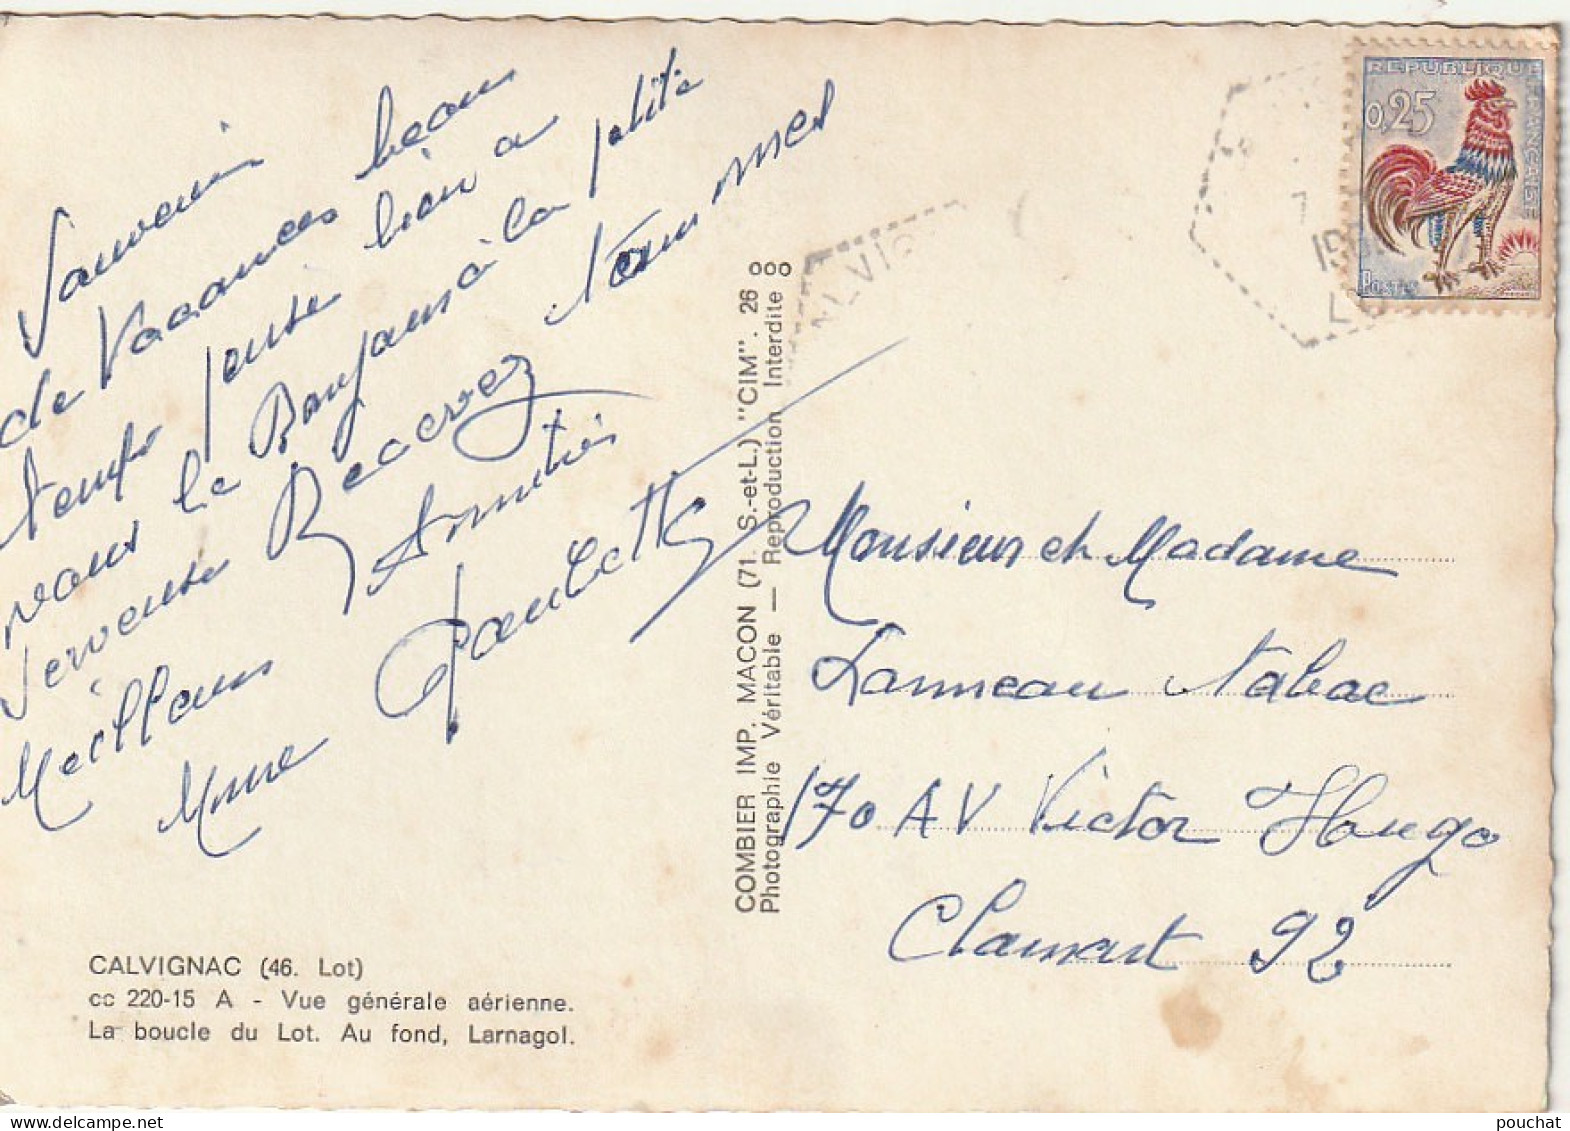 Souvenir
de Vacances beau
temps pense bien a
vous le Bonjours à la petite
serveuse Recevez
Meilleurs Amitiés
Mme Paulette
Monsieur et Madame
Lanneau Tabac
170 AV Victor Hougo
Clamart 92
REPUBLIQUE FRANÇAISE
0,25
POSTES
COMBIER IMP. MACON (71. S.-et-L.) "CIM". 26
Photographie Véritable — Reproduction Interdite
CALVIGNAC (46. Lot)
cc 220-15 A - Vue générale aérienne.
La boucle du Lot. Au fond, Larnagol.
pouchat